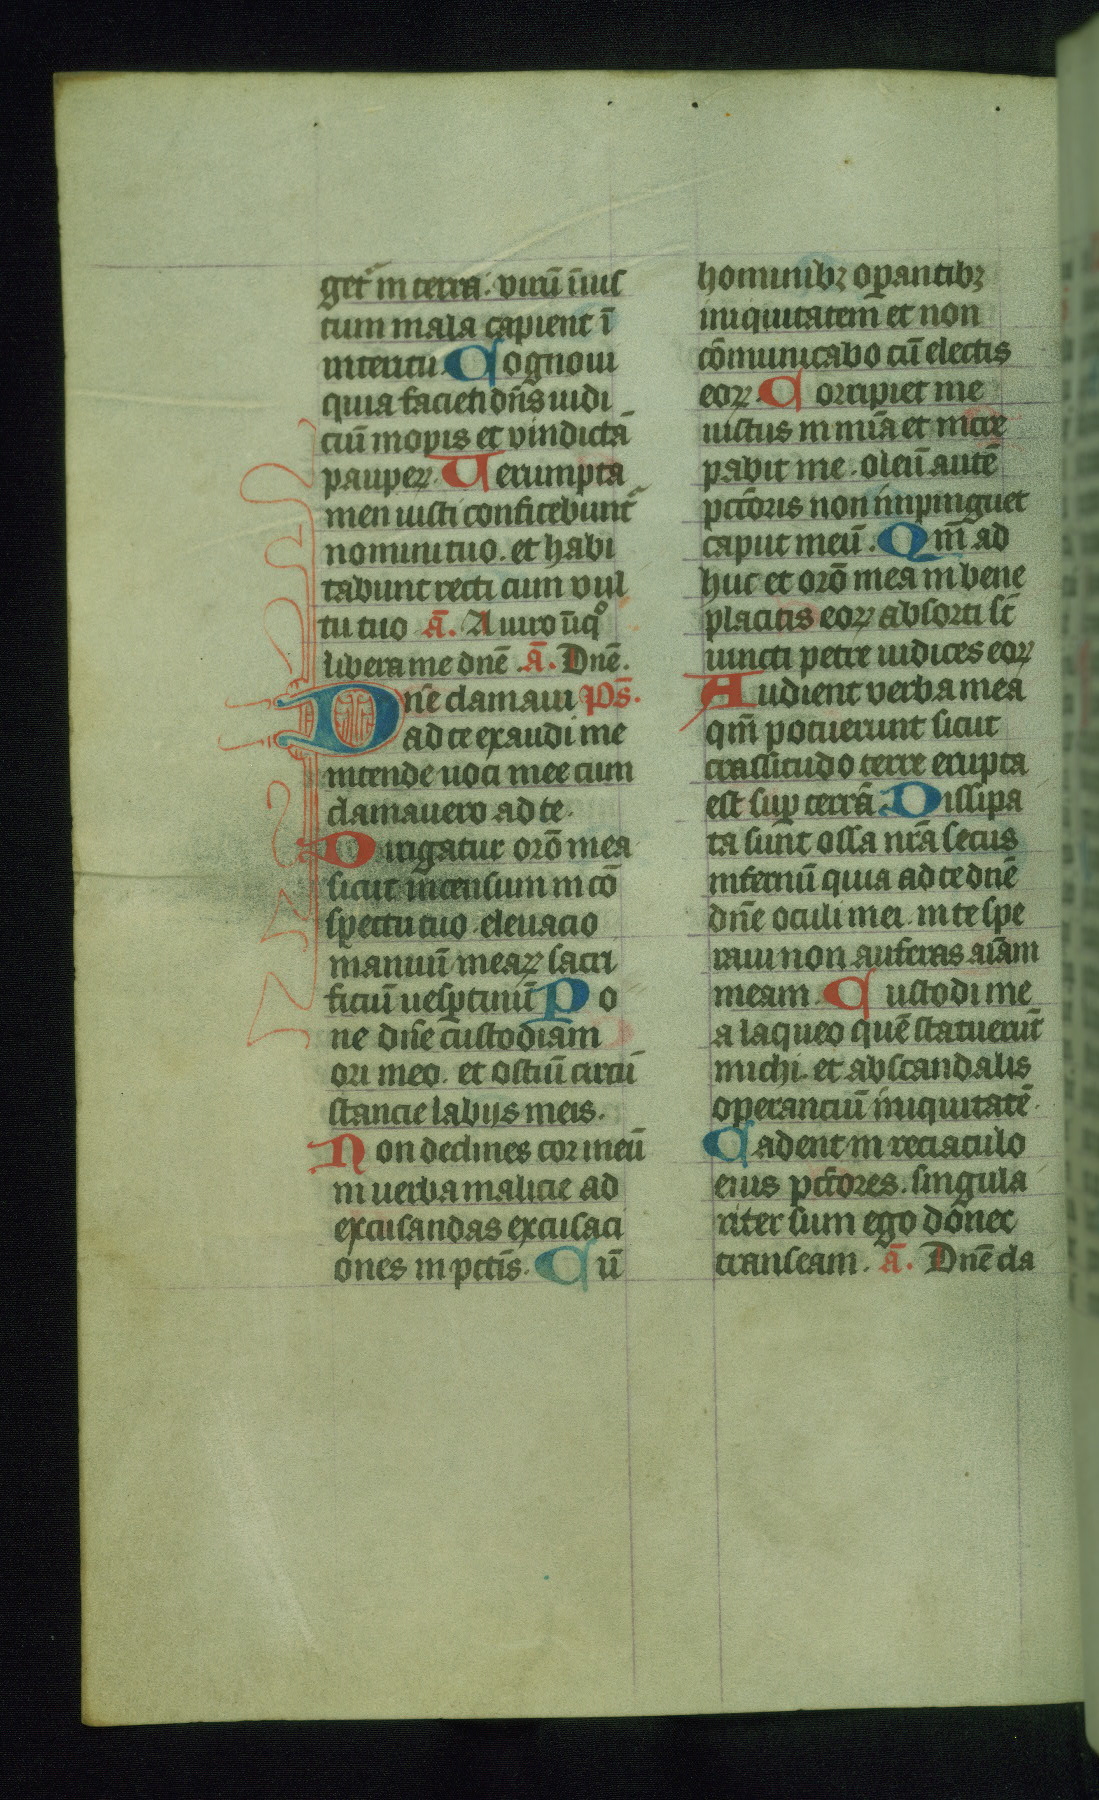 get̄ in terra. virū īius
tum mala capient ī
interitu. Cognoui
quia faciet dn̄s iudi
ciū inopis et vindictā
pauperꝝ. Uerumpta
men iusti confitebunt̄
nomini tuo. et habi
tabunt recti cum vul
tu tuo ā. A uiro īiqͦ
libera me dn̄e. ā. Dn̄e.
Dn̄e clamaui ps̄.
ad te exaudi me
intende uoci mee cum
clamauero ad te.
Dirigatur orō mea
sicut incensum in cō
spectu tuo. eleuacio
manuū mearꝝ sacri
ficiū uesꝑtinū Po
ne dn̄e custodiam
ori meo. et ostiū circū
stancie labijs meis.
Non declines cor meū
in uerba malicie ad
excusandas excusaci
ones in pctīs. Cū
hominibꝫ oꝑantibꝫ
iniquitatem et non
cōmunicabo cū electis
eorꝝ. Corripiet me
iustus in mīa et incre
pabit me. oleū autē
pctōris non inpinguet
caput meū. Qm̄ ad
huc et orō mea in bene
placitis eorꝝ absorti st̄
iuncti petre iudices eorꝝ
Audient verba mea
qm̄ potuerunt sicut
crassitudo terre erupta
est suꝑ terrā. Dissipa
ta sunt ossa nrā secus
infernū quia ad te dn̄e
dn̄e oculi mei. in te spe
raui non auferas aīam
meam. Custodi me
a laqueo quē statuerūt
michi. et ab scandalis
operanciū iniquitatē.
Cadent in reciaculo
eius pctōres. singula
riter sum ego donec
transeam. ā. Dn̄e cla